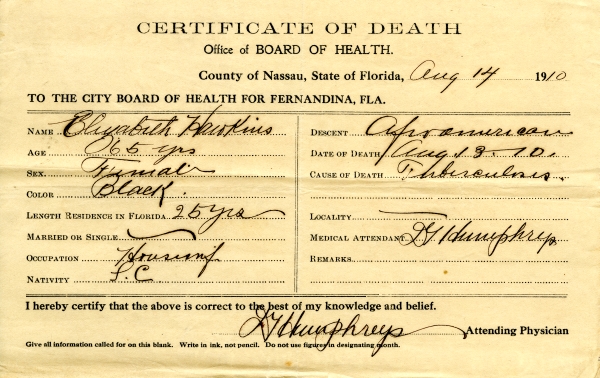 CERTIFICATE OF DEATH
Office of BOARD OF HEALTH.
County of Nassau, State of Florida, Aug 14 1910
TO THE CITY BOARD OF HEALTH FOR FERNANDINA, FLA.
NAME Elizabeth Hawkins
AGE 65 yrs
SEX. Female
COLOR Black.
LENGTH RESIDENCE IN FLORIDA 25 yrs
MARRIED OR SINGLE
OCCUPATION
NATIVITY S.C
DESCENT Afro american
DATE OF DEATH Aug 13-10.
CAUSE OF DEATH Tuberculosis.
LOCALITY
MEDICAL ATTENDANT Humphreys
REMARKS
I hereby certify that the above is correct to the best of my knowledge and belief.
Humphreys Attending Physician
Give all information called for on this blank. Write in ink, not pencil. Do not use figures in designating month.